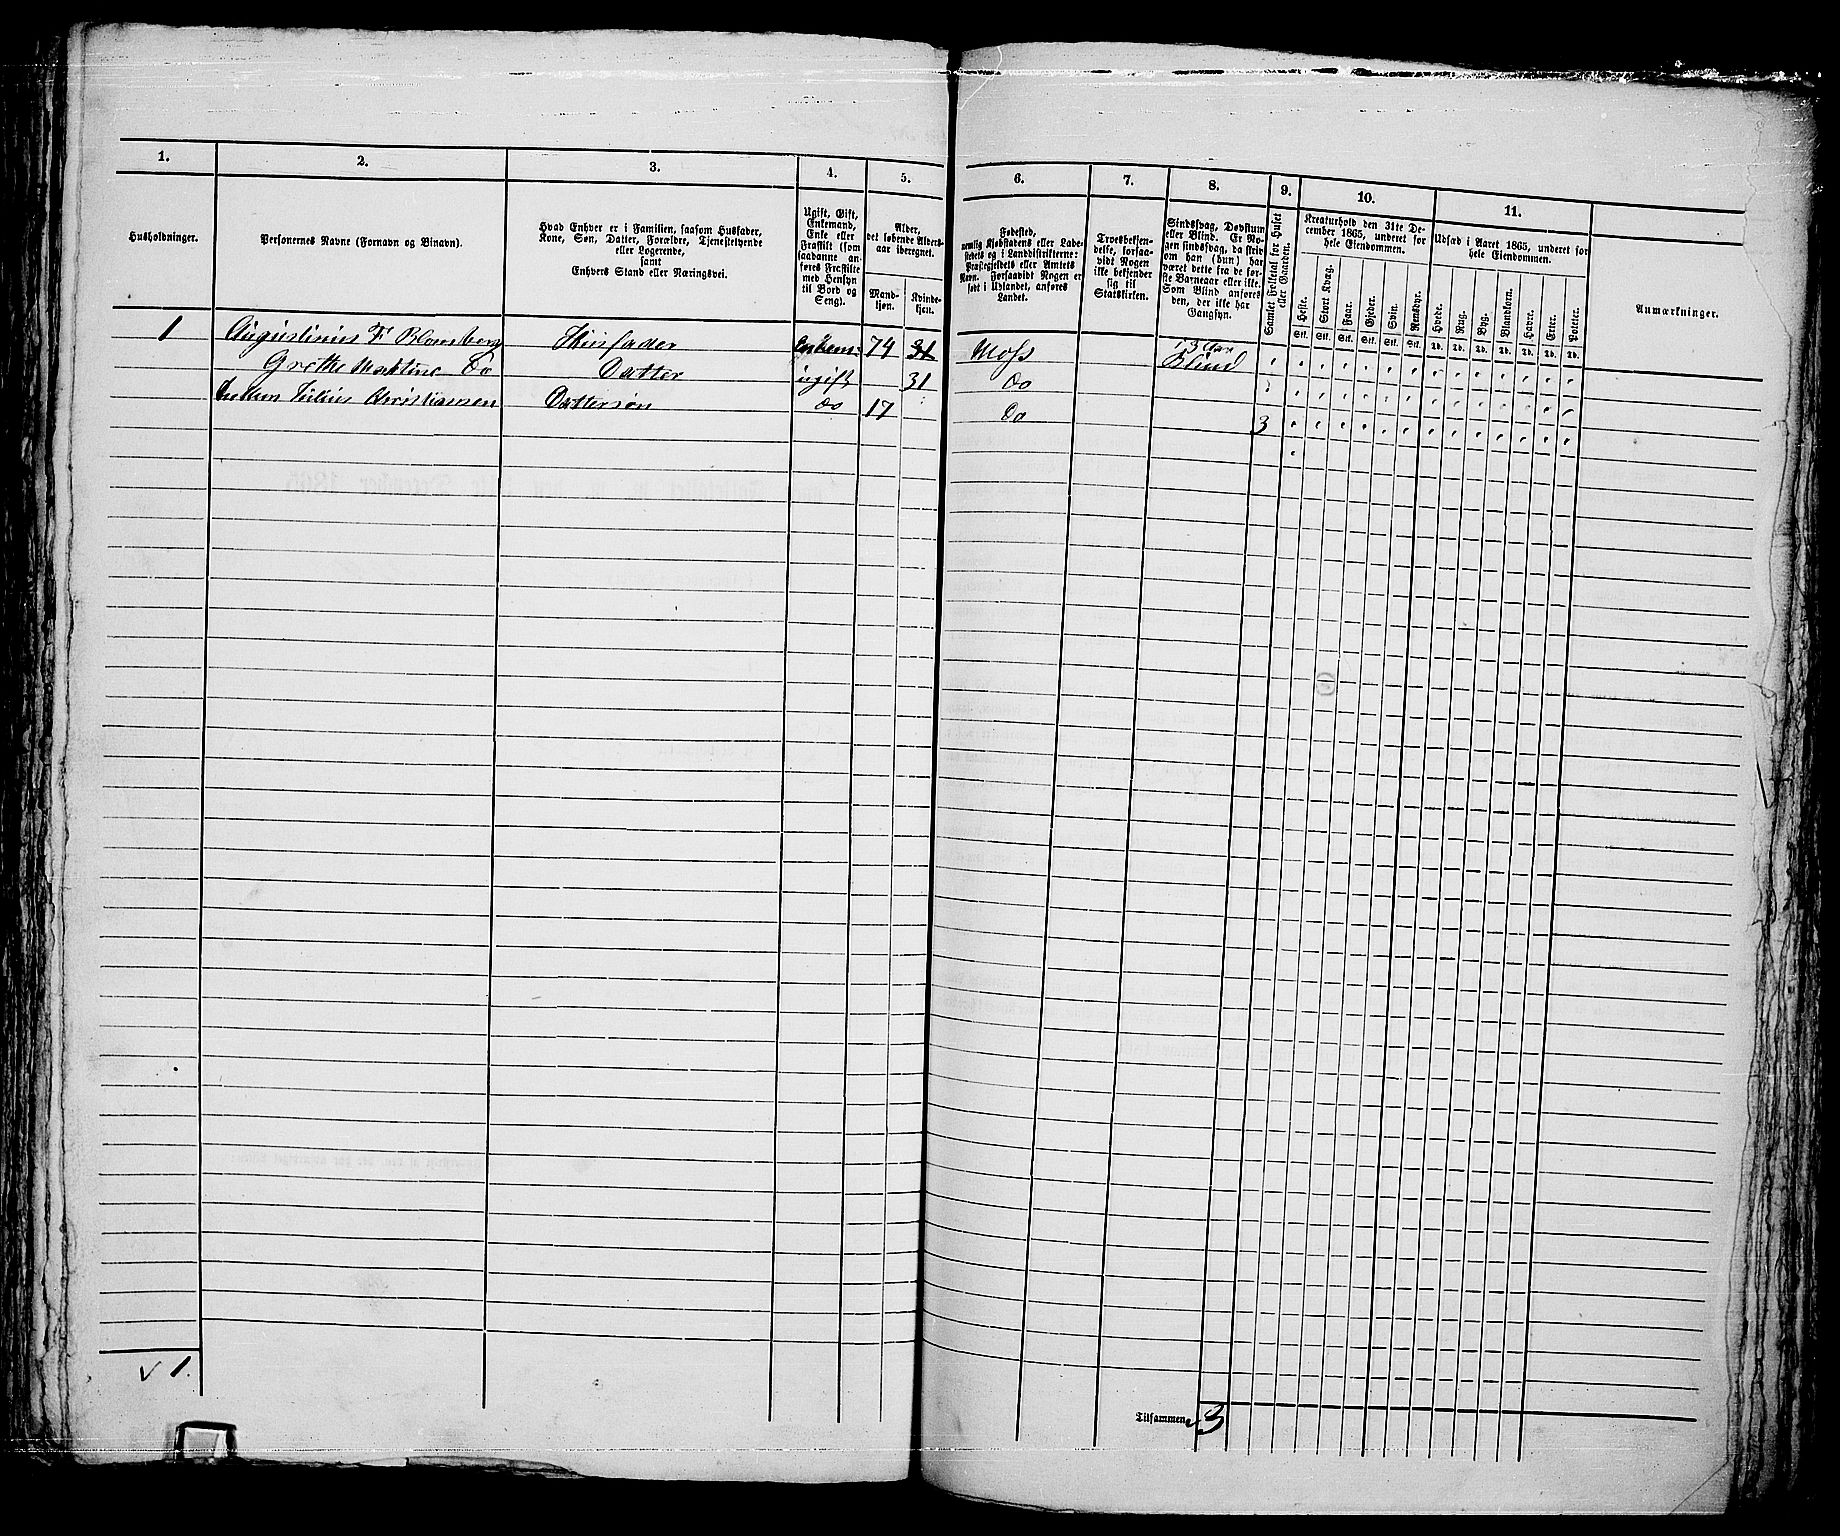 1. 2. 3. 4. 5. 6. 7. 8. 9. 10. 11.
Husholdninger.
Personernes Navne (Fornavn og Binavn).
Hvad Enhver er i Familien, saasom Husfader,
Kone, Søn, Datter, Forældre, Tjenestetyende
eller Logerende,
samt
Enhvers Stand eller Næringsvei.
Ugift, Gift,
Enkemand,
Enke eller
Fraskilt (som
saadanne an-
føres Fraskilte
med Hensyn
til Bord og
Seng).
Alder,
det løbende Alders-
aar iberegnet.
Mand-
kjøn.
Kvinde-
kjøn.
Fødested,
nemlig Kjøbstadens eller Lade-
stedets og i Landdistrikterne:
Præstegjeldets eller Amtets
Navn. Forsaavidt Nogen er
født i Udlandet, anføres
Landet.
Troesbekjen-
delse, forsaa-
vidt Nogen
ikke bekjender
sig til
Statskirken.
Sindssvag, Døvstum
eller Blind. Er No-
gen sindssvag, da skriv
om han (hun) har
været dette fra de før-
ste Barneaar eller ikke.
Som Blind anføres
den, der ikke har
Gangsyn.
Samlet Folketal for Huset
eller Gaarden.
Kreaturhold den 31te De-
cember 1865, underet for
hele Eiendommen.
Heste. Stort Kvæg. Faar. Gjeder. Svin. Rensdyr.
Stk. Stk. Stk. Stk. Stk. Stk.
Udsæd i Aaret 1865, underet for
hele Eiendommen.
Hvede. Rug. Byg. Blandkorn. Havre. Erter. Poteter.
Td. Td. Td. Td. Td. Td. Td.
Anmærkninger.
1 Augustinius F Blomsberg Husfader Enkem: 74 31 Moss 13 Aar Blind
Grethe Martine Do Datter ugift 31 Do
Julius Christiansen Dattersøn Do 17 Do 3
v 1.
Tilsammen v 3